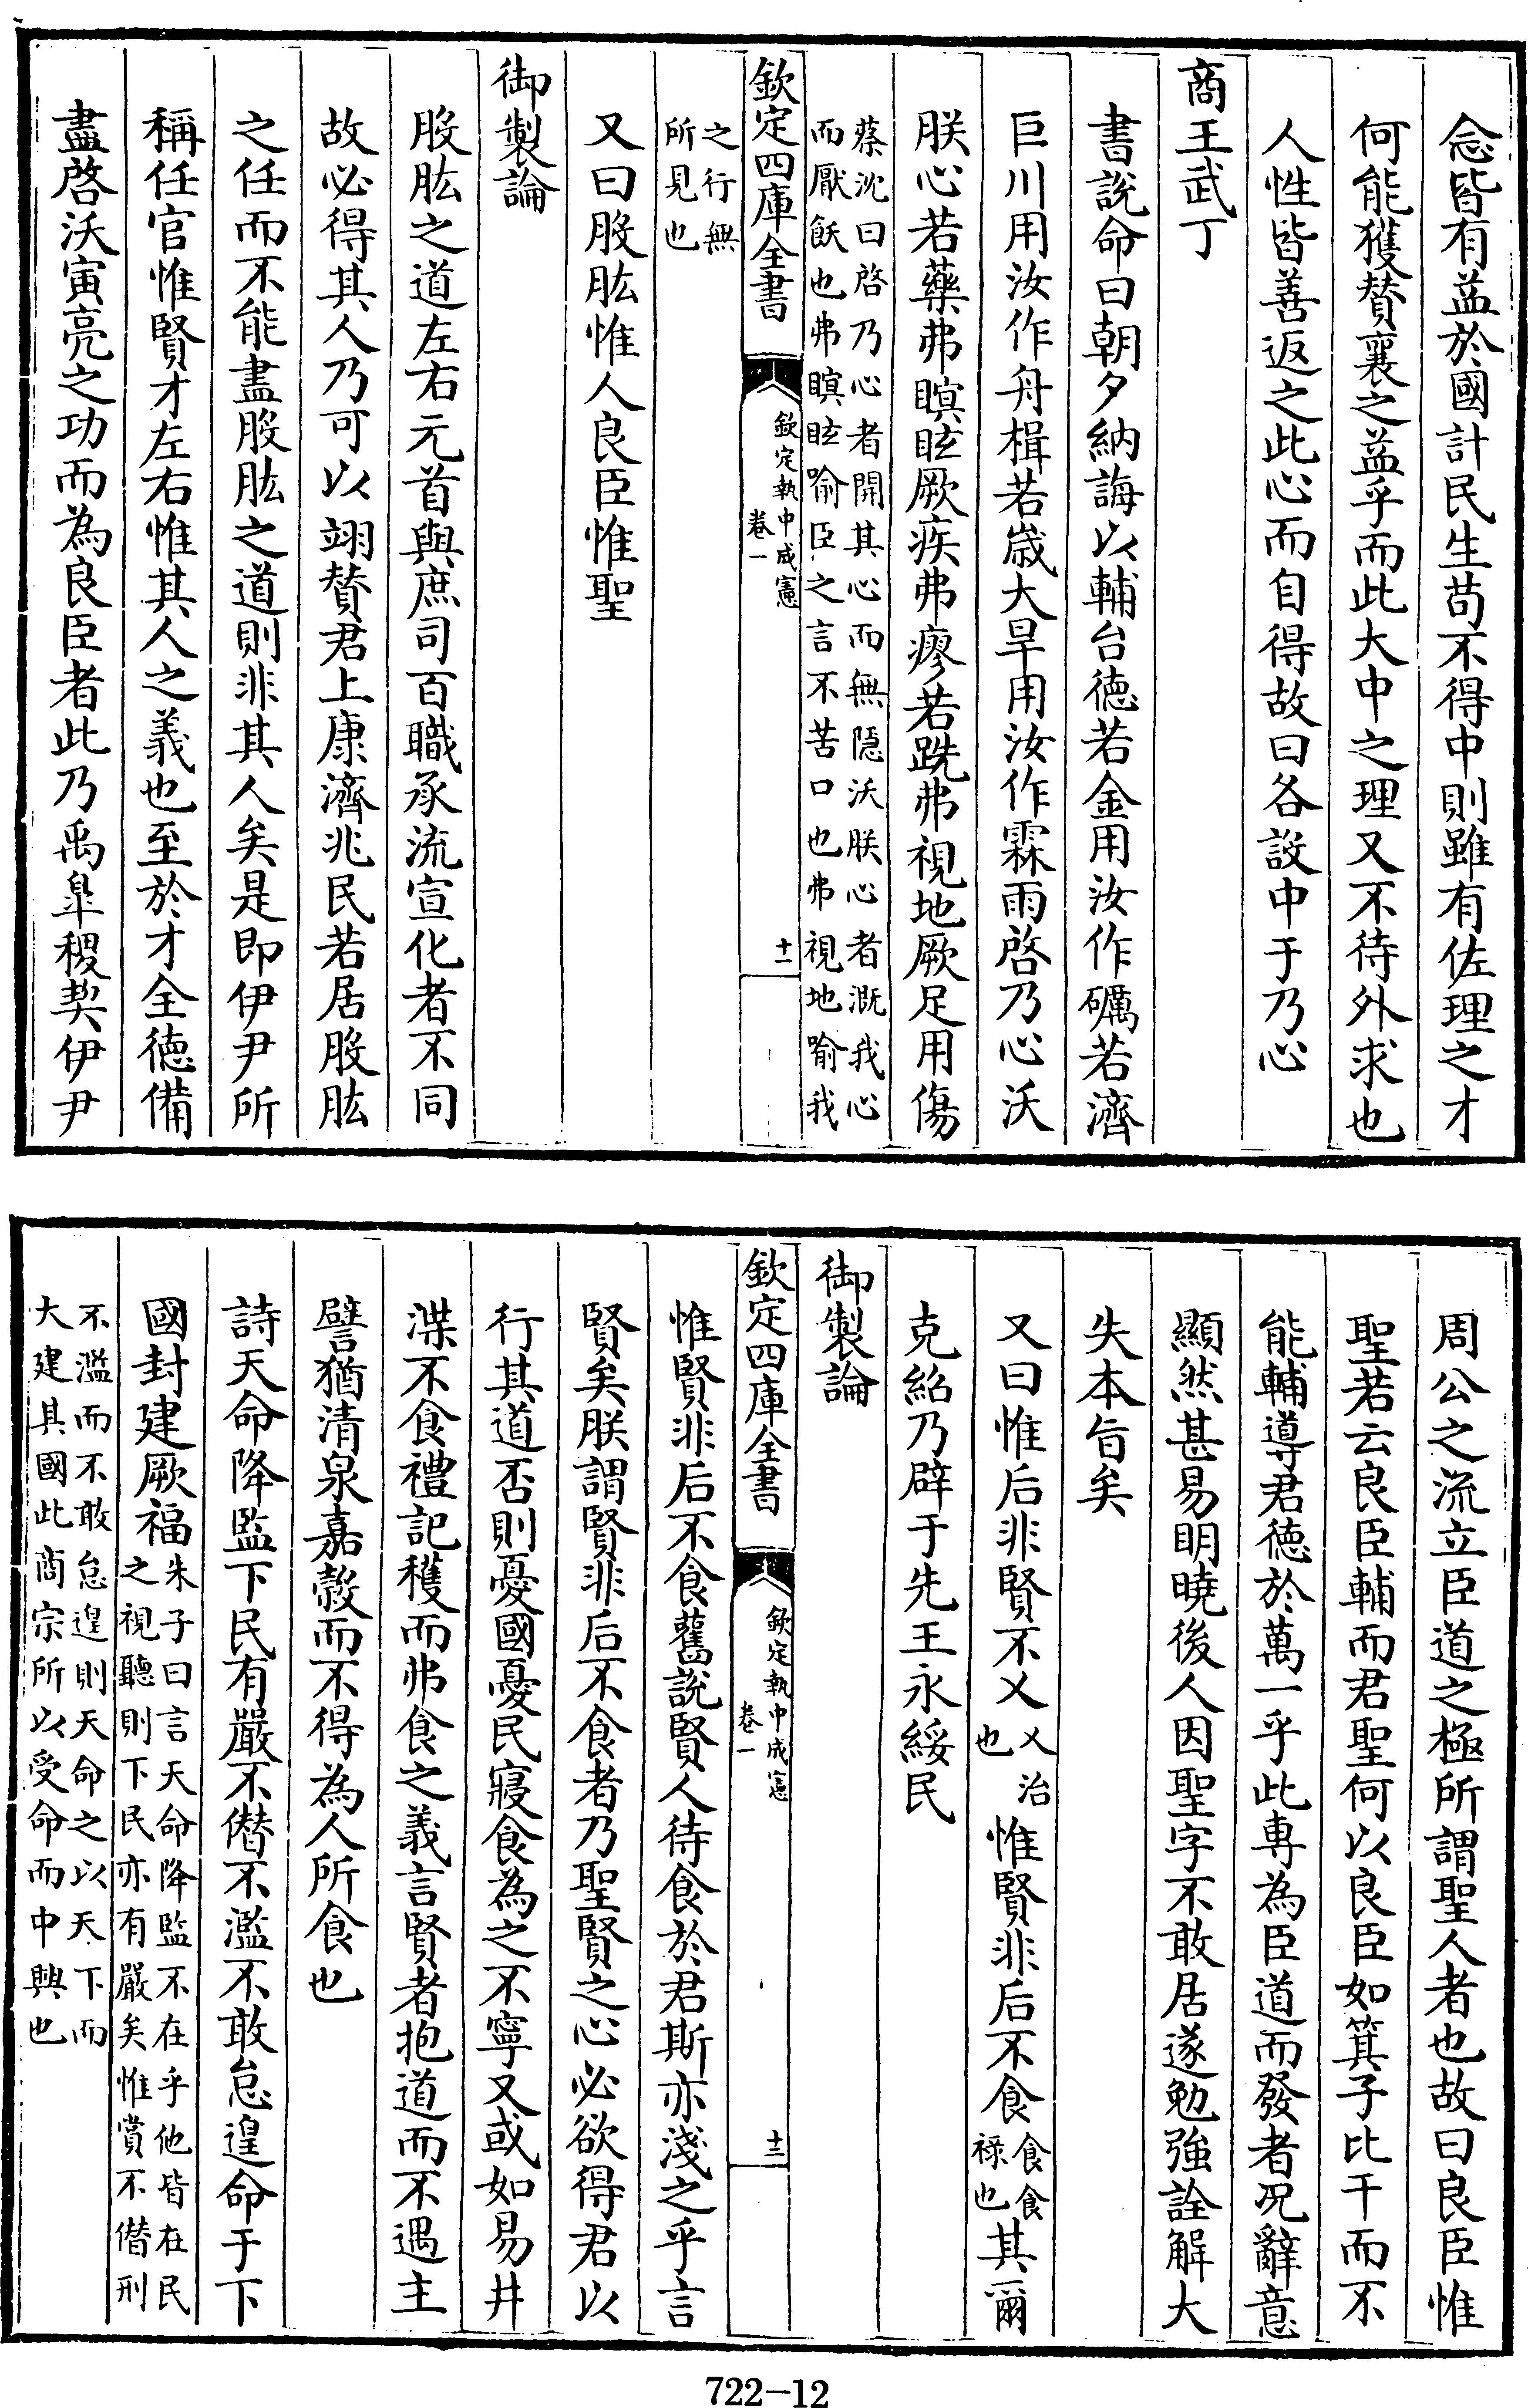 念皆有益於國計民生苟不得中則雖有佐理之才
何能獲贊襄之益乎而此大中之理又不待外求也
人性皆善返之此心而自得故曰各設中于乃心
商王武丁
書說命曰朝夕納誨以輔台徳若金用汝作礪若濟
巨川用汝作舟楫若歲大旱用汝作霖雨啓乃心沃
朕心若藥弗瞑眩厥疾弗瘳若跣弗視地厥足用傷
蔡沈曰啓乃心者開其心而無隱沃朕心者溉我心
而厭飫也弗瞑眩喻臣之言不苦口也弗視地喻我
欽定四庫全書
欽定執中成憲
卷一
十一
之行無
所見也
又曰股肱惟人良臣惟聖
御製論
股肱之道左右元首與庶司百職承流宣化者不同
故必得其人乃可以翊贊君上康濟兆民若居股肱
之任而不能盡股肱之道則非其人矣是即伊尹所
稱任官惟賢才左右惟其人之義也至於才全徳備
盡啓沃寅亮之功而為良臣者此乃禹臯稷契伊尹
周公之流立臣道之極所謂聖人者也故曰良臣惟
聖若云良臣輔而君聖何以良臣如箕子比干而不
能輔導君徳於萬一乎此專為臣道而發者况辭意
顯然甚易明曉後人因聖字不敢居遂勉強詮解大
失本旨矣
又曰惟后非賢不乂乂治也惟賢非后不食食食禄也其爾
克紹乃辟于先王永綏民
御製論
欽定四庫全書
欽定執中成憲
卷一
十二
惟賢非后不食舊說賢人待食於君斯亦淺之乎言
賢矣朕謂賢非后不食者乃聖賢之心必欲得君以
行其道否則憂國憂民寢食為之不寧又或如易井
渫不食禮記穫而弗食之義言賢者抱道而不遇主
譬猶清泉嘉穀而不得為人所食也
詩天命降監下民有嚴不僭不濫不敢怠遑命于下
國封建厥福朱子曰言天命降監不在乎他皆在民
之視聽則下民亦有嚴矣惟賞不僭刑
不濫而不敢怠遑則天命之以天下而
大建其國此商宗所以受命而中興也
722-12